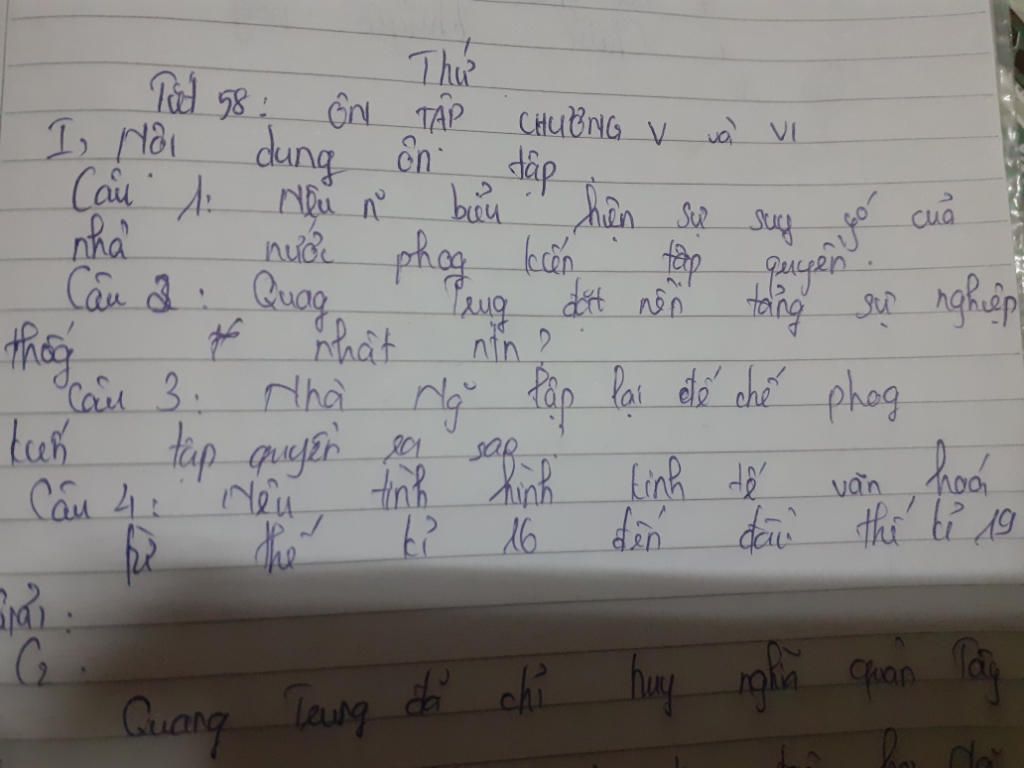 Thứ
Tiết 58: ÔN TẬP CHƯƠNG V và VI
I, Nội dung ôn tập
Câu 1: Nêu n~ biểu hiện sự suy yếu của
nhà nước phog kiến tập quyền.
Câu 2: Quag Trug đặt nền tảng sự nghiệp
thốg nhất
Câu 3: Nhà Ng~ lập lại đế chế phog
kiến tập quyền ra sao
Câu 4: Nêu tình hình kinh tế văn hoá
từ thế kỉ 16 đến đầu thế kỉ 19
Giải:
C2.
Quang Trung đã chỉ huy nghĩa quân Tây